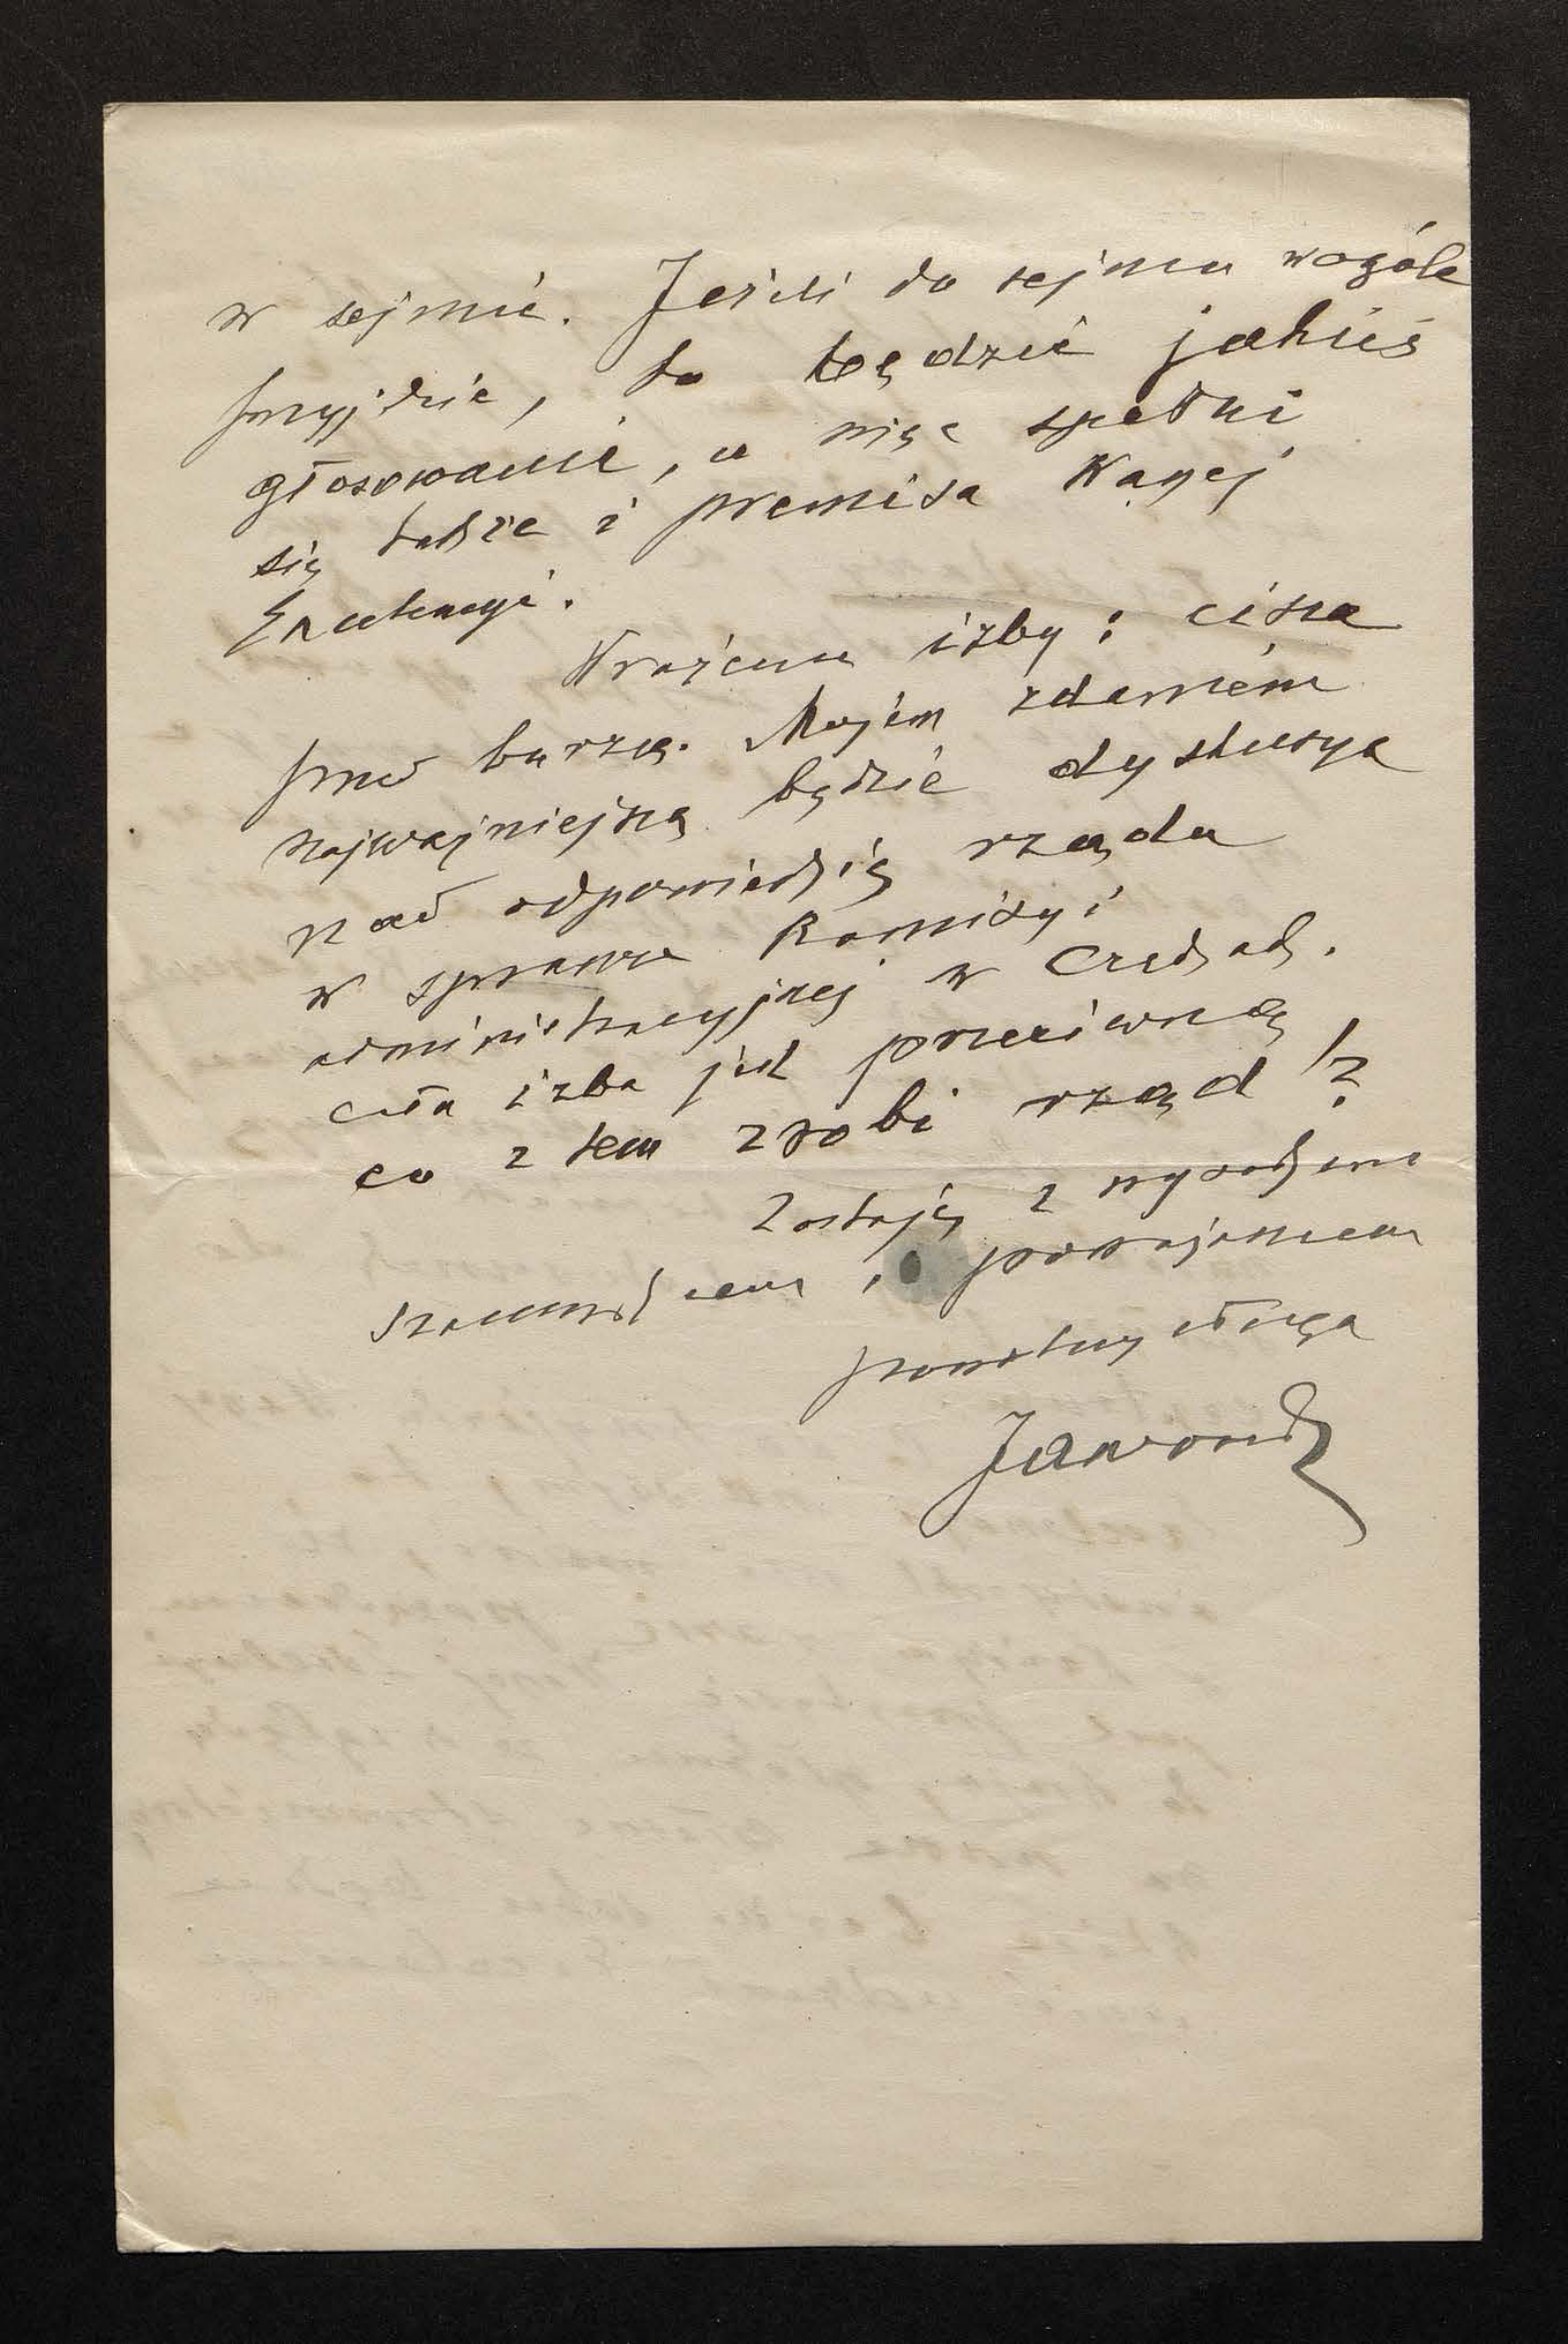 w sejmie. Jeżeli do sejmu wogóle
przyjdzie, to będzie jakieś
głosowanie, a więc spełni
się także i premisa Waszej
Excelencyi.
Wrażenie izby: cisza
przed burzą. Mojem zdaniem
najważniejszą będzie dyskusya
nad odpowiedzią rządu
w sprawie Komisyi
administracyjnej w Czechach.
cała izba jest przeciwną
co z tem zrobi rząd!?
Zostaję z wysokiem
szacunkiem i poważaniem
powolny sługa
Jaworski